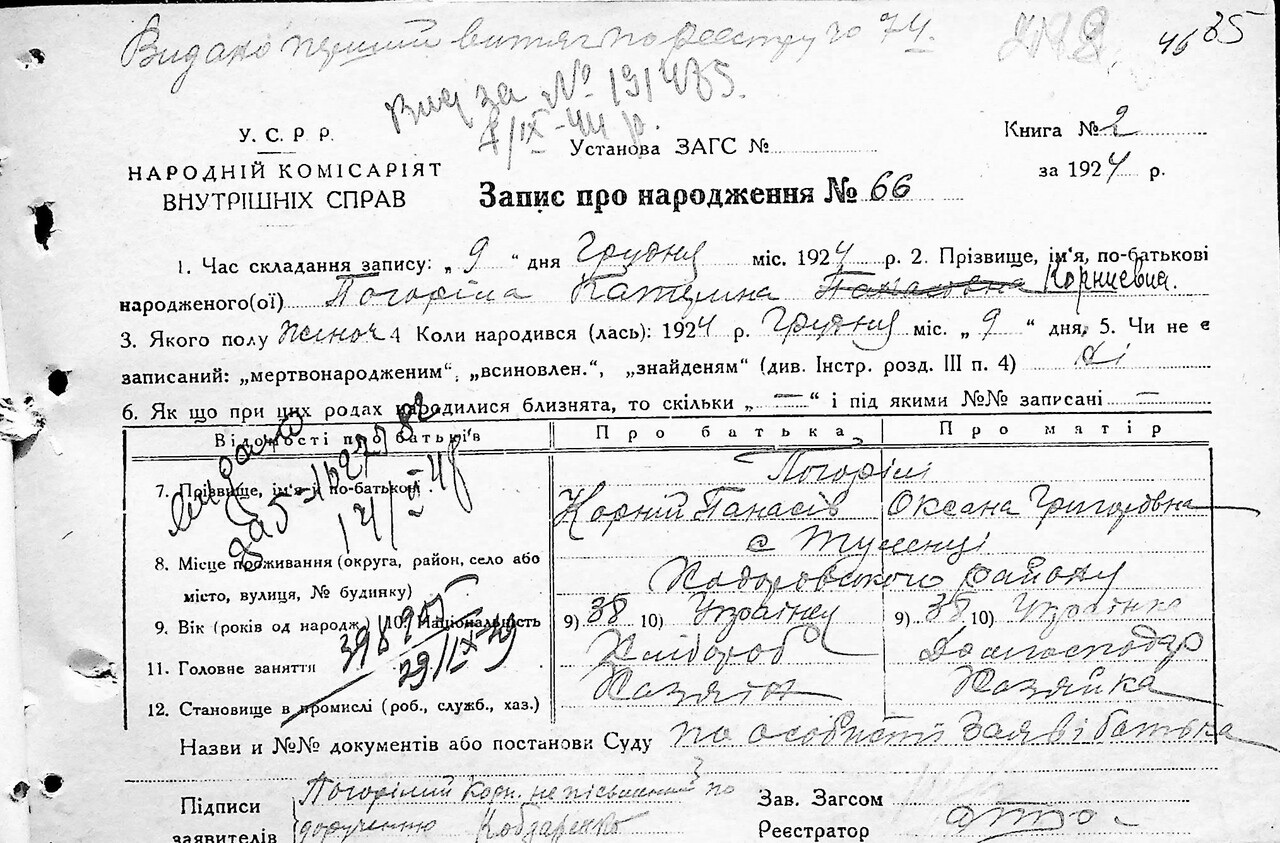 Видано перший витяг по реєстру № 74.
46 35
Вид за № 191485.
IX-44 р.
У. С. Р. Р.
НАРОДНІЙ КОМІСАРІЯТ
ВНУТРІШНІХ СПРАВ
Установа ЗАГС №
Книга № 2
за 1924 р.
Запис про народження № 66
1. Час складання запису: „ 9 “ дня Грудня міс. 1924 р. 2. Прізвище, ім'я, по-батькові
народженого(ої) Погоріла Катерина Панасовна Корниевна.
3. Якого полу Жіноч 4 Коли народився (лась): 1924 р. Грудня міс. „ 9 “ дня, 5. Чи не є
записаний: „мертвонародженим“, „всиновлен.“, „знайденям“ (див. Інстр. розд. III п. 4) Ні
6. Як що при цих родах народилися близнята, то скільки „ — “ і під якими №№ записані —
Відомості про батьків Про батька Про матір
Погорілі
7. Прізвище, ім'я й по-батькові Корній Панасів Оксана Григоровна
видано
с Тулинці
8. Місце проживання (округа, район, село або
місто, вулиця, № будинку) Ходоровського району
9. Вік (років од народж.) 10. Національность 9) 38 10) Українец 9) 38 10) Українка
29/IX-49
11. Головне заняття Хлібороб Домгосподар
12. Становище в промислі (роб., служб., хаз.) Хазяїн Хазяйка
Назви и №№ документів або постанови Суду по особистій заяві батька
Підписи
заявителів
Погорілий Корн. не письменний по
дорученню Кобзаренко
Зав. Загсом
Реєстратор